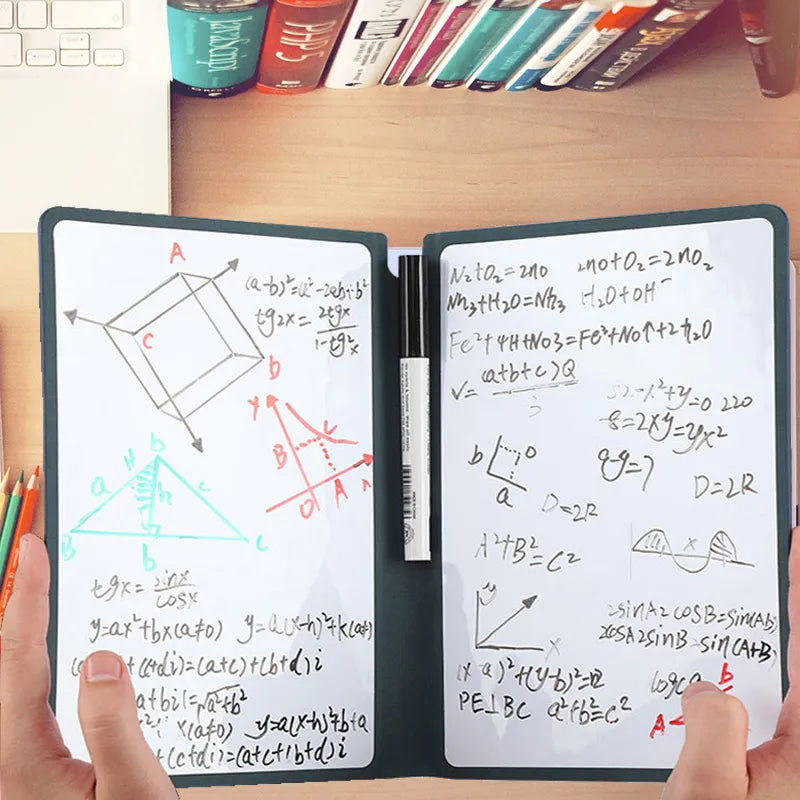 JavaScript
O'REILLY
A
C
b
(a-b)²=a²-2ab+b²
tg2x=2tgx/1-tg²x
Y
B
C
O
A
b
H
a
h
c
B
b
C
tgx=sinx/cosx
y=ax²+bx(a≠0) y=a(x-h)²+k(a≠
+(c+di)=(a+c)+(b+d)i
a+bi|=√a²+b²
x(a≠0) y=a(x-h)²+b+a
+(c+di)=(a+c+(b+d)i
N₂+O₂=2no 2no+O₂=2nO₂
Nh₃+H₂O=Nh₃ H₂O+OH⁻
Fe²+4H+No3=Fe²+No↑+2h₂O
V=(a+b+c)Q/3
52-x²+y=0 220
-8=2xy=yx²
b
O
a
D=2R
D=2R
A²+B²=C²
x
y
x
2sinA2cosB=sin(Ab)
2cosA2sinB=sin(A+B)
(x-a)²+(y-b)²=
PE⊥BC a²+b²=c²
logca
b
A